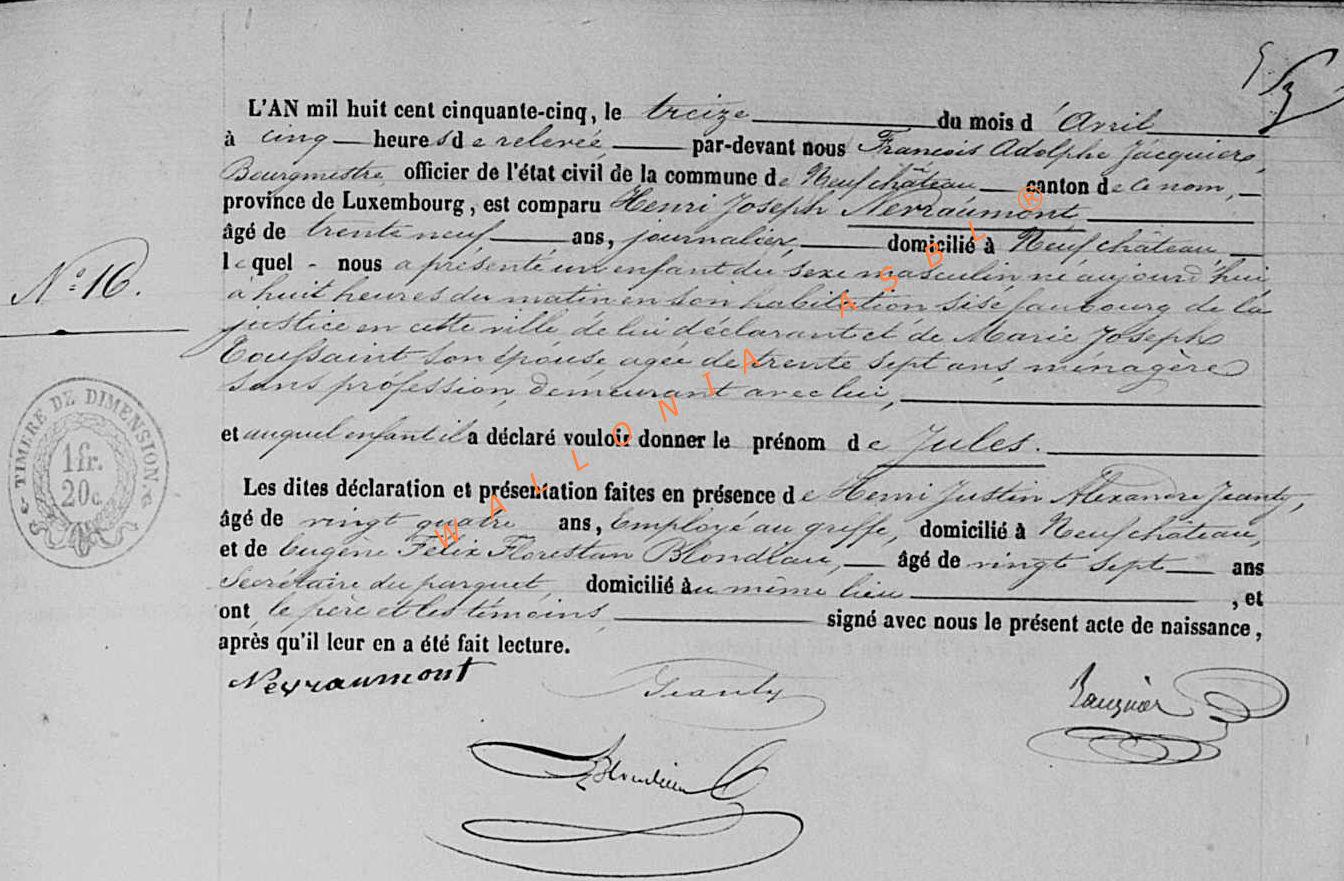 L'AN mil huit cent cinquante-cinq, le treize du mois d'Avril
à cinq heures de relevée par-devant nous François Adolphe Jacquier,
Bourgmestre, officier de l'état civil de la commune de Neufchâteau canton de ce nom,
province de Luxembourg, est comparu Henri Joseph Neyraumont
âgé de trente neuf ans, journalier, domicilié à Neufchâteau
lequel - nous a présenté un enfant du sexe masculin né aujourd'hui
N° 16.
à huit heures du matin en son habitation sise faubourg de la
justice en cette ville de lui déclarant et de Marie Joseph
Toussaint son épouse agée de trente sept ans, ménagère
sans profession, demeurant avec lui,
TIMBRE DE DIMENSION.
1 fr.
20 c.
et auquel enfant il a déclaré vouloir donner le prénom de Jules.
Les dites déclaration et présentation faites en présence de Henri Justin Alexandre Jeanty,
âgé de vingt quatre ans, Employé au greffe, domicilié à Neufchâteau,
et de Eugène Félix Florestan Blondiau, âgé de vingt sept ans
Secrétaire du parquet, domicilié au même lieu, et
ont le père et les témoins, signé avec nous le présent acte de naissance,
après qu'il leur en a été fait lecture.
Neyraumont Jeanty Jacquier
Blondiau
WALLONIA ASBL ®